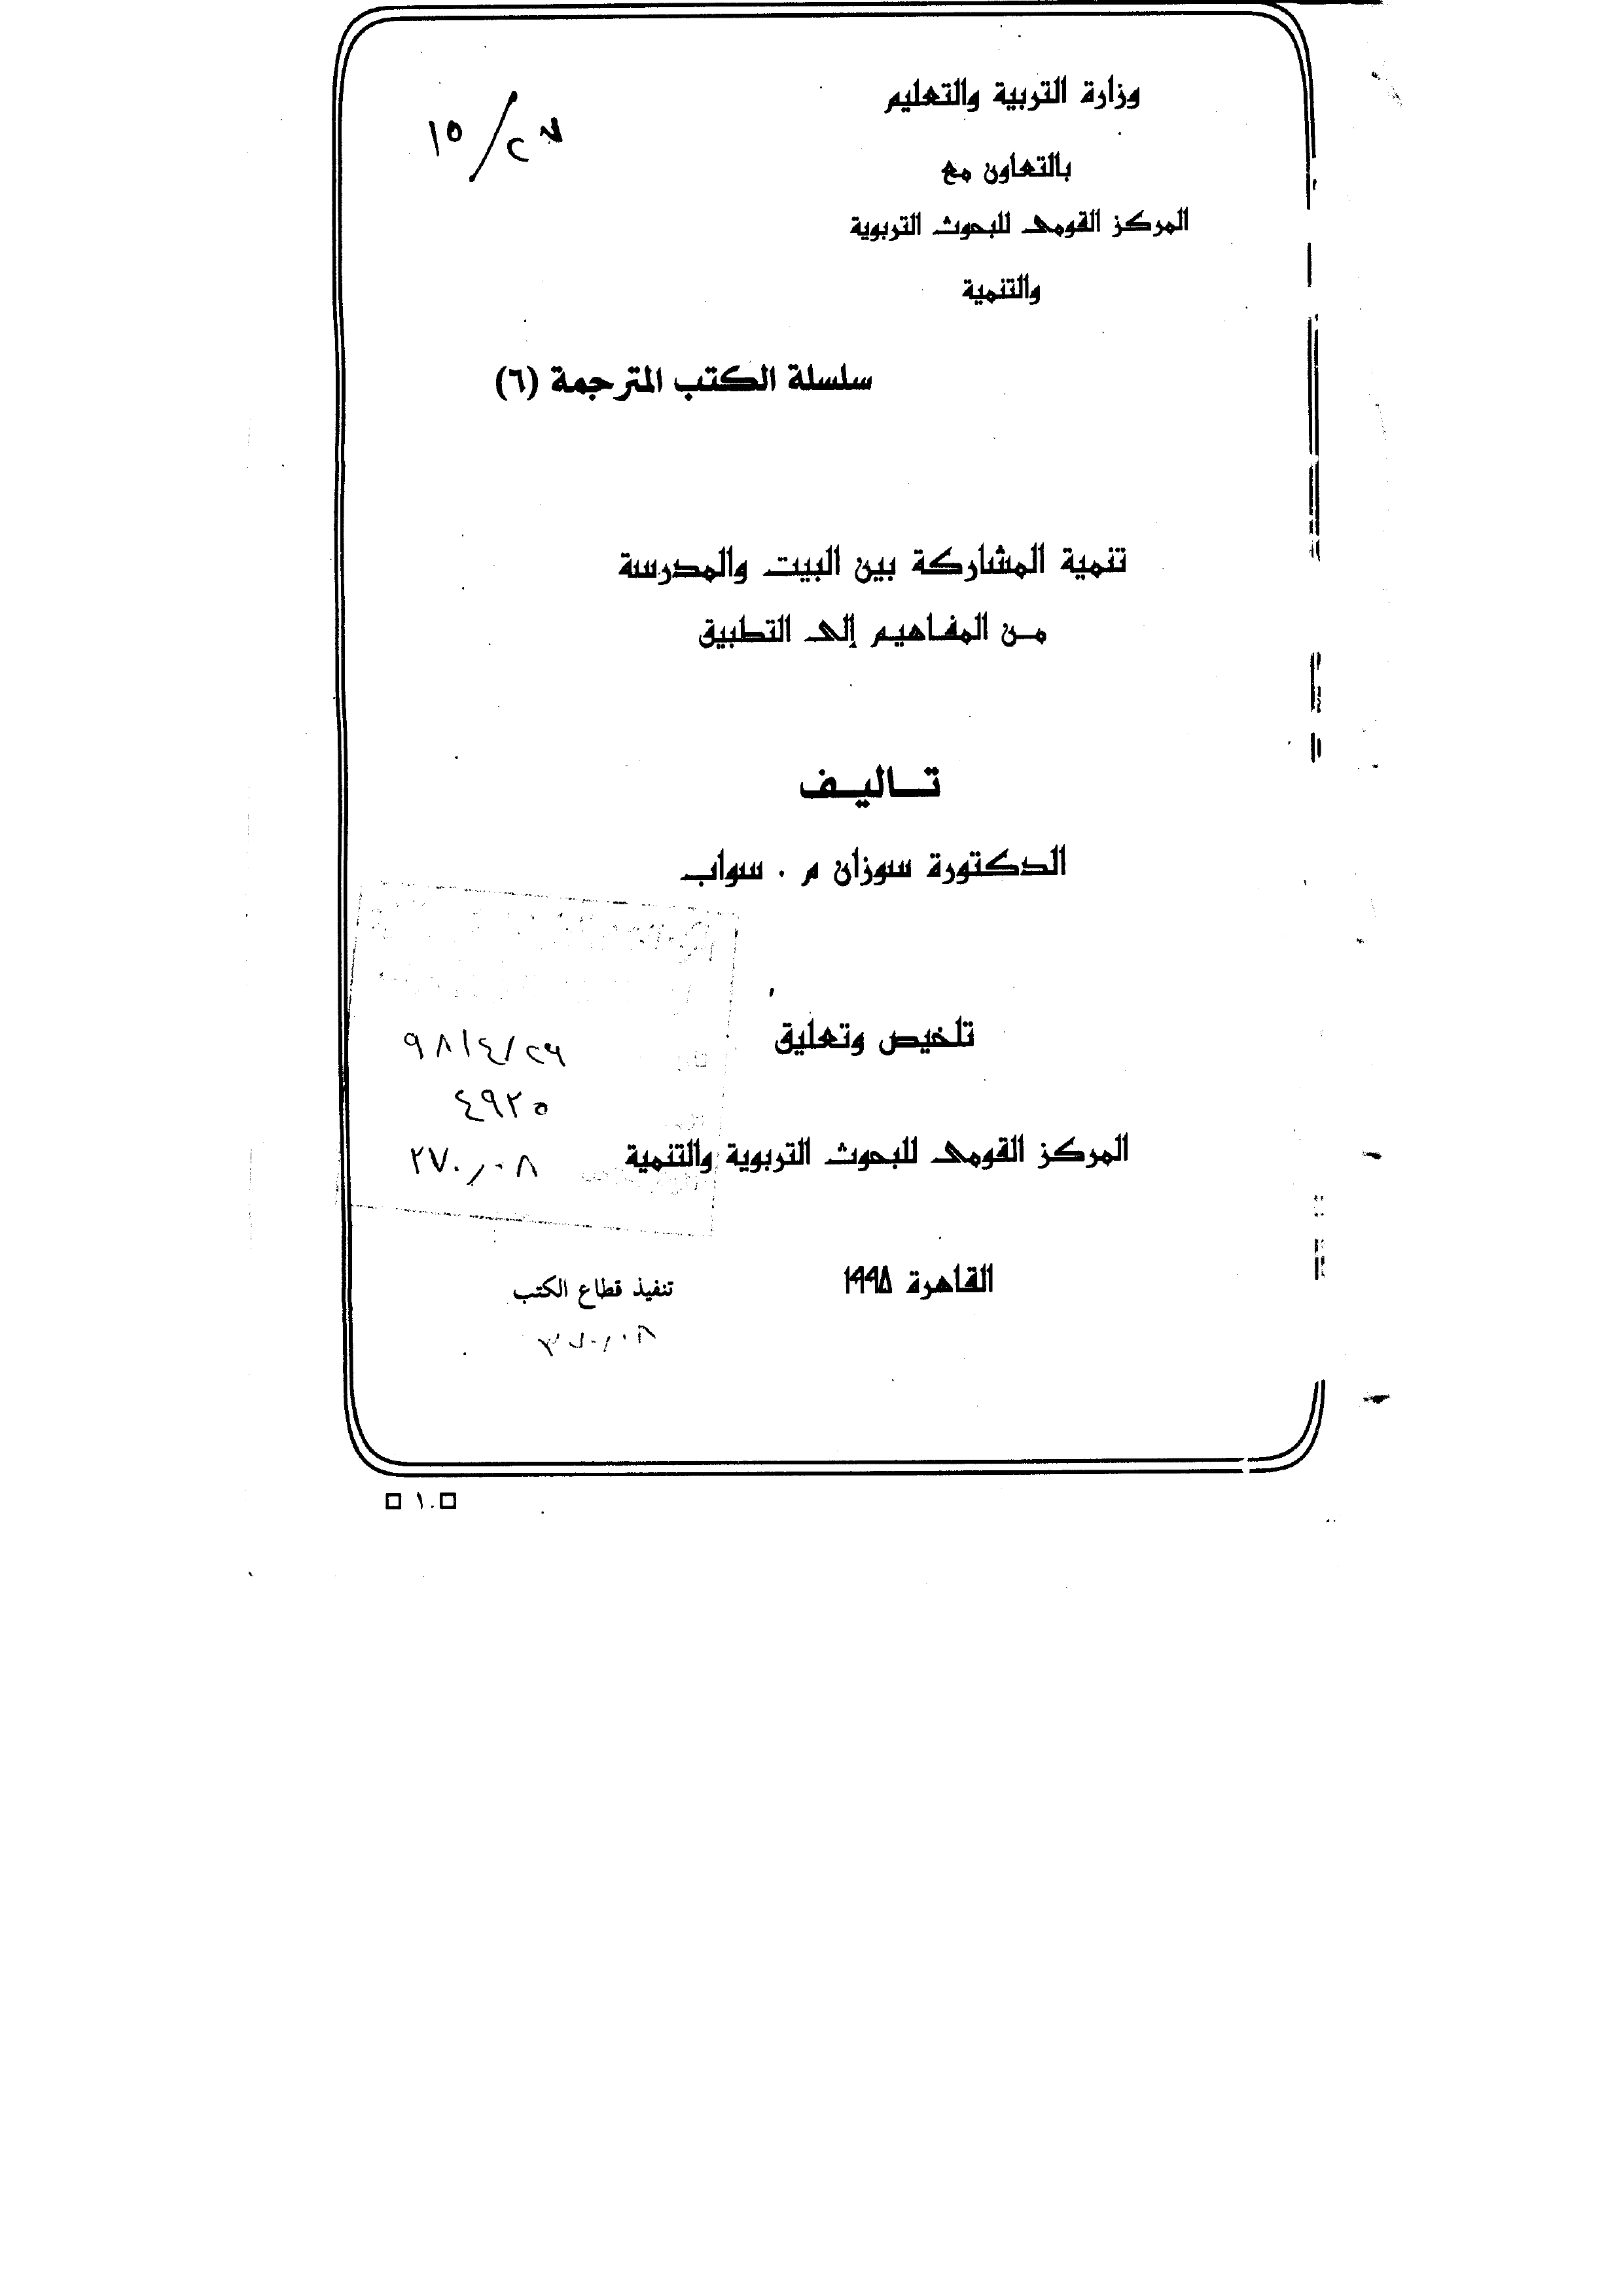 وزارة التربية والتعليم
بالتعاون مع
المركز القومى للبحوث التربوية
والتنمية
سلسلة الكتب المترجمة (٦)
تنمية المشاركة بين البيت والمدرسة
مـن المفـاهيم إلى التطبيق
تــاليــف
الدكتورة سوزان م . سواب
تلخيص وتعليق
٤٩٢٥
المركز القومى للبحوث التربوية والتنمية
القاهرة ١٩٩٨
تنفيذ قطاع الكتب